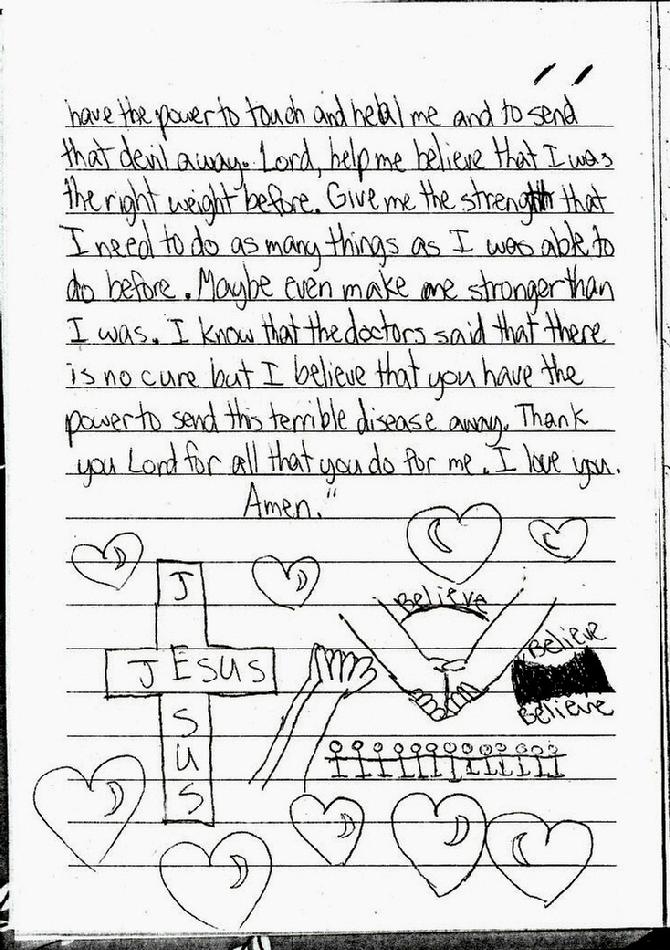 have the power to touch and heal me and to send
that devil away. Lord, help me believe that I was
the right weight before. Give me the strength that
I need to do as many things as I was able to
do before. Maybe even make me stronger than
I was. I know that the doctors said that there
is no cure but I believe that you have the
power to send this terrible disease away. Thank
you Lord for all that you do for me. I love you.
Amen."
Believe
Believe
Believe
J
JESUS
S
U
S